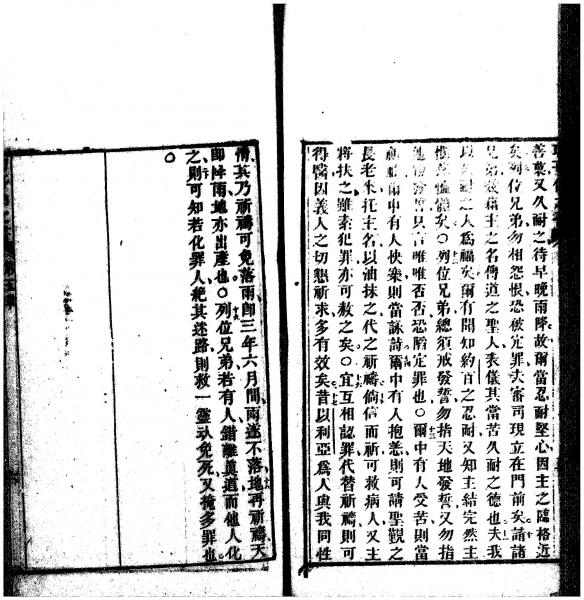 善菓又久耐之待早晚雨降故爾當忍耐堅心因主之臨格近
矣列位兄弟勿相怨恨恐被定罪夫審司現立在門前矣請諸
兄弟效藉主之名傳道之聖人表儀其當苦久耐之德也夫我
以久耐之人為福矣爾有聞知約百之忍耐又知主結完然主
憐 矣〇列位兄弟總須戒發誓勿指天地發誓又勿指
他 只言唯唯否否恐陷定罪也〇爾中有人受苦則當
祈禱爾中有人快樂則當詠詩爾中有人抱恙則可請聖觀之
長老來托主名以油抹之代之祈禱倘信而祈可救病人又主
將扶之雖素犯罪亦可赦之矣〇宜互相認罪代替祈禱則可
得醫因義人之切懇祈求多有效矣昔以利亞為人與我同性
情其乃祈禱可免落雨即三年六月間雨遂不落地再祈禱天
即降雨地亦出產也〇列位兄弟若有人錯離眞道而他人化
之則可知若化罪人絶其迷路則救一靈魂免死又掩多罪也
〇